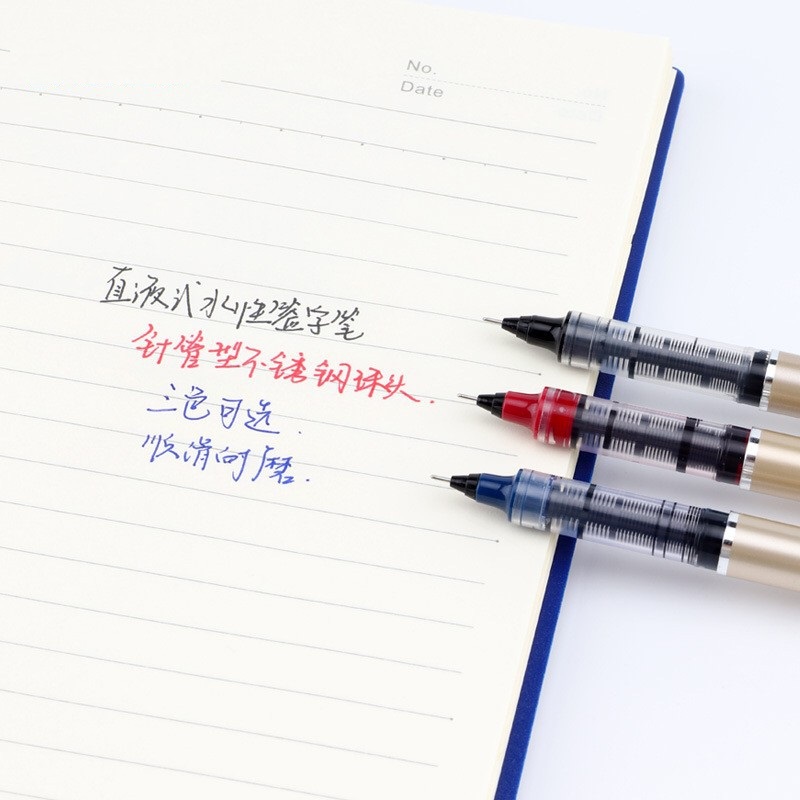 No.
Date
直液式水性签字笔
针管型不锈钢球头.
三色可选.
顺滑耐磨.